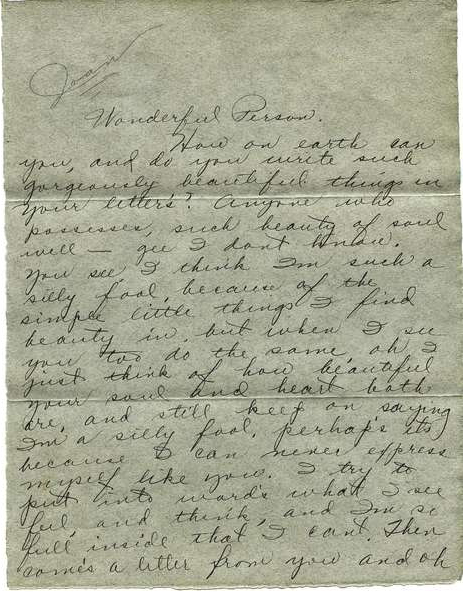 Joan
Wonderful Person.
How on earth can
you, and do you write such
gorgeously beautiful things in
your letters? Anyone who
possesses, such beauty of soul
well — gee I dont know.
You see I think I'm such a
silly fool, because of the
simple little things I find
beauty in, but when I see
you too do the same, oh I
just think of how beautiful
your soul and heart both
are, and still keep on saying
I'm a silly fool, perhaps its
because I can never express
myself like you. I try to
put into words what I see
feel, and think, and I'm so
full inside that I cant. Then
comes a letter from you and oh